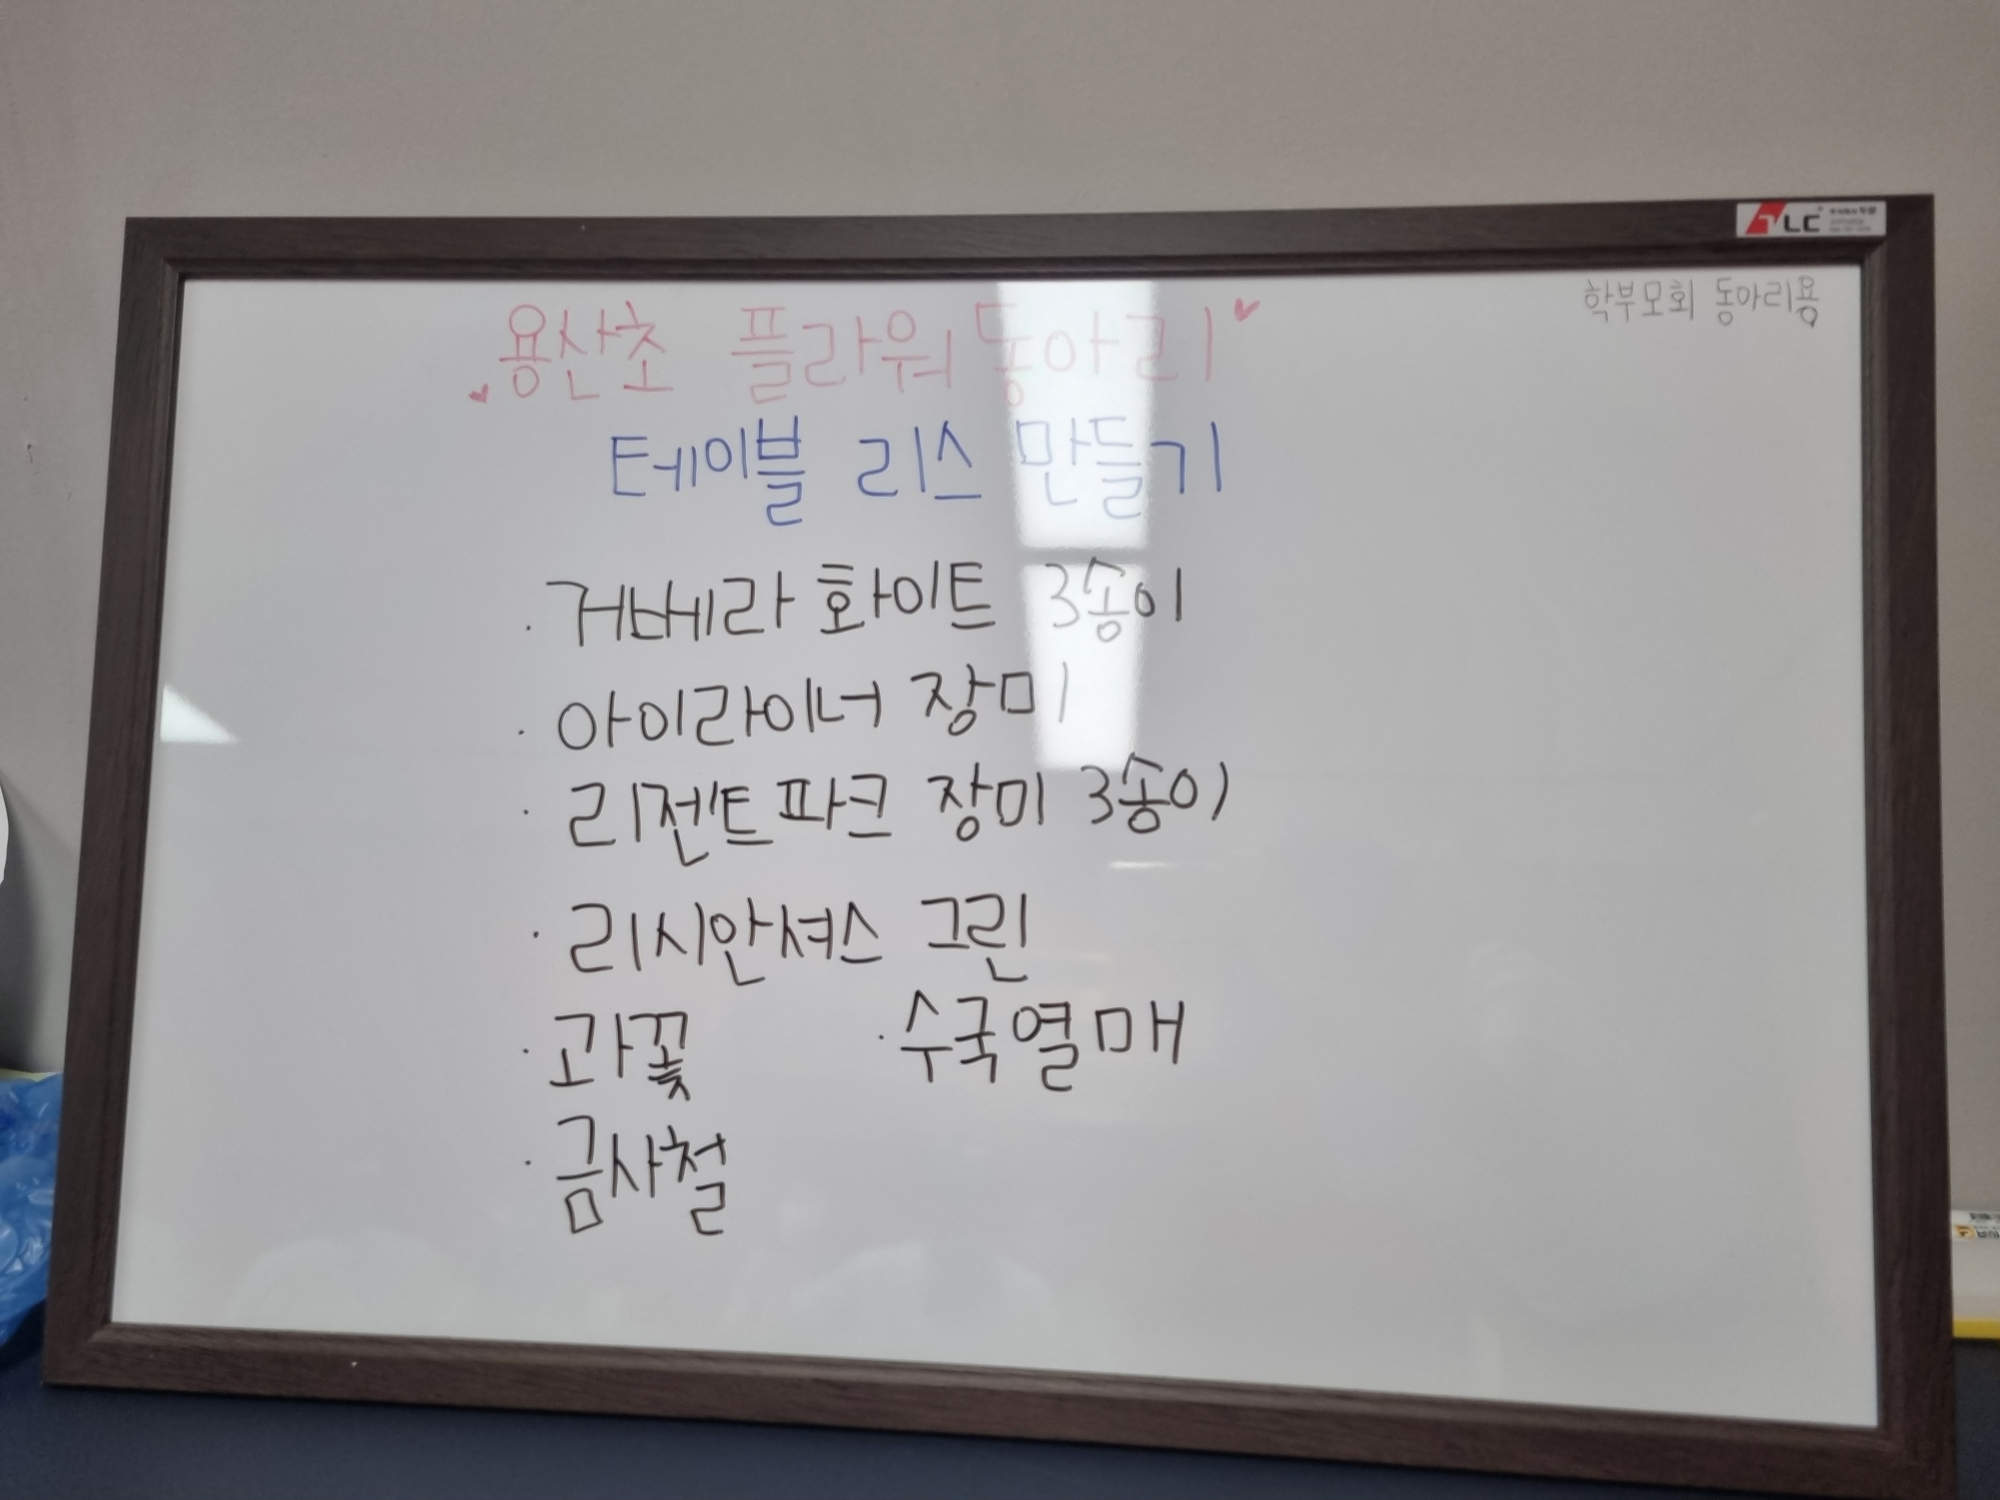 TLC
학부모회 동아리용
용산초 플라워 동아리
테이블 리스 만들기
· 거베라 화이트 3송이
· 아이라이너 장미
· 리젠트파크 장미 3송이
· 리시안셔스 그린
· 과꽃 · 수국열매
· 금사철